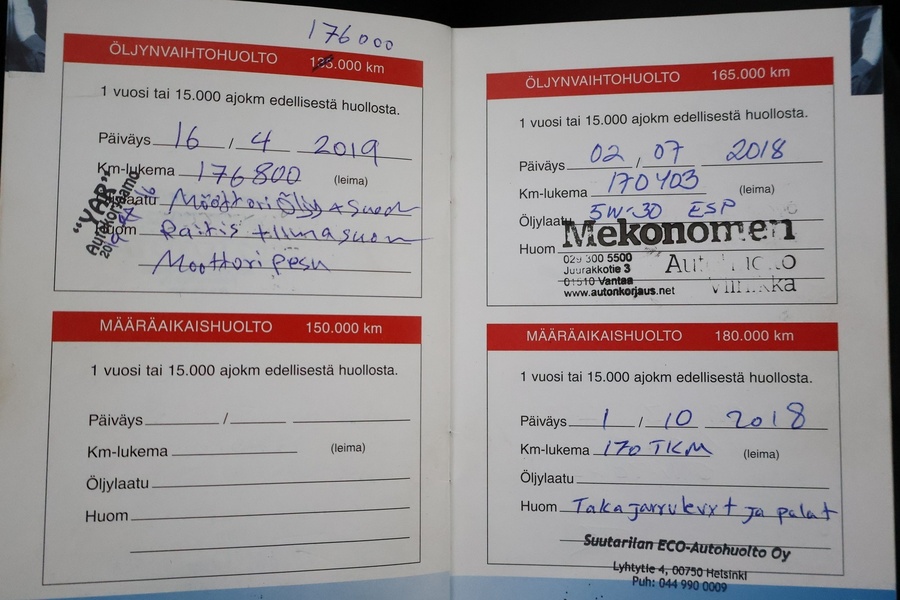 176000
ÖLJYNVAIHTOHUOLTO 135.000 km
1 vuosi tai 15.000 ajokm edellisestä huollosta.
Päiväys 16 / 4 2019
Km-lukema 176800 (leima)
Öljylaatu Moottoriöljy + suod
Huom Raitis + ilmasuon
Moottori pesu
"YAP"
Autokorjaamo
MÄÄRÄAIKAISHUOLTO 150.000 km
1 vuosi tai 15.000 ajokm edellisestä huollosta.
Päiväys /
Km-lukema (leima)
Öljylaatu
Huom
ÖLJYNVAIHTOHUOLTO 165.000 km
1 vuosi tai 15.000 ajokm edellisestä huollosta.
Päiväys 02 / 07 2018
Km-lukema 170403 (leima)
Öljylaatu 5W-30 ESP
Huom Mekonomen
029 300 5500
Juurakkotie 3
01510 Vantaa
www.autonkorjaus.net
MÄÄRÄAIKAISHUOLTO 180.000 km
1 vuosi tai 15.000 ajokm edellisestä huollosta.
Päiväys 1 / 10 2018
Km-lukema 170 TKM (leima)
Öljylaatu
Huom Takajarrulevxt ja palat
Suutarilan ECO-Autohuolto Oy
Lyhtytie 4, 00750 Helsinki
Puh: 044 990 0009